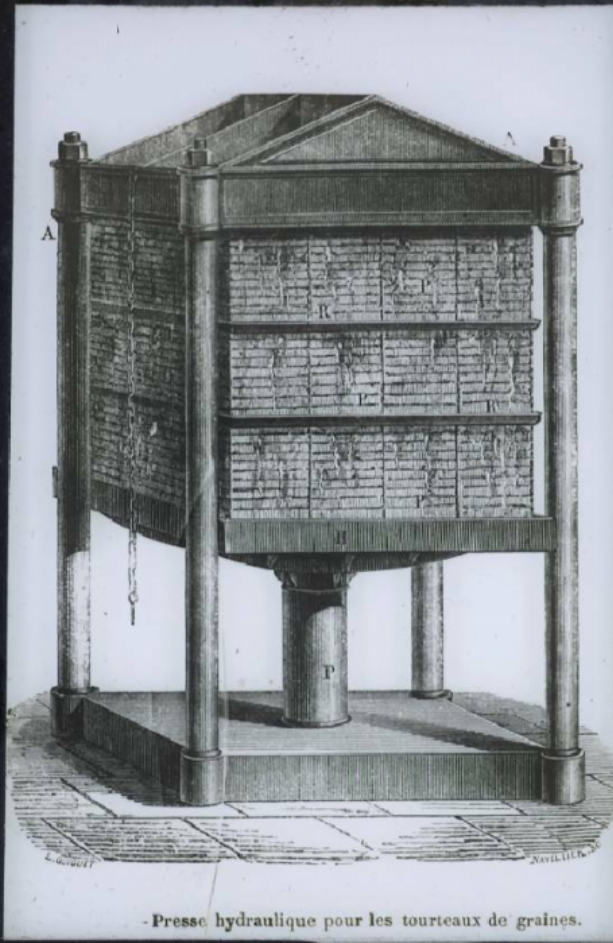 A
A
P
R
P
R
P
H
P
L. GUIGUET
NAVELLIER. SC
-Presse hydraulique pour les tourteaux de graines.